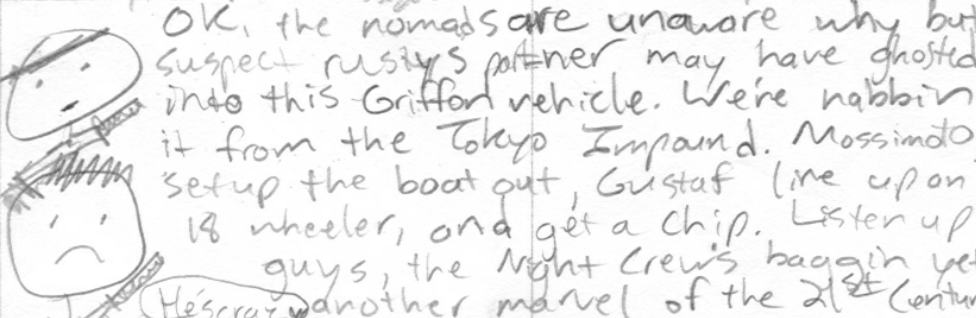 OK, the nomads are unaware why but
suspect rustys partner may have ghosted
into this Griffon vehicle. We're nabbin
it from the Tokyo Impound. Mossimoto
setup the boat out, Gustaf line up an
18 wheeler, and get a chip. Listen up
guys, the Night Crew's baggin yet
another marvel of the 21st Centur
He's crazy